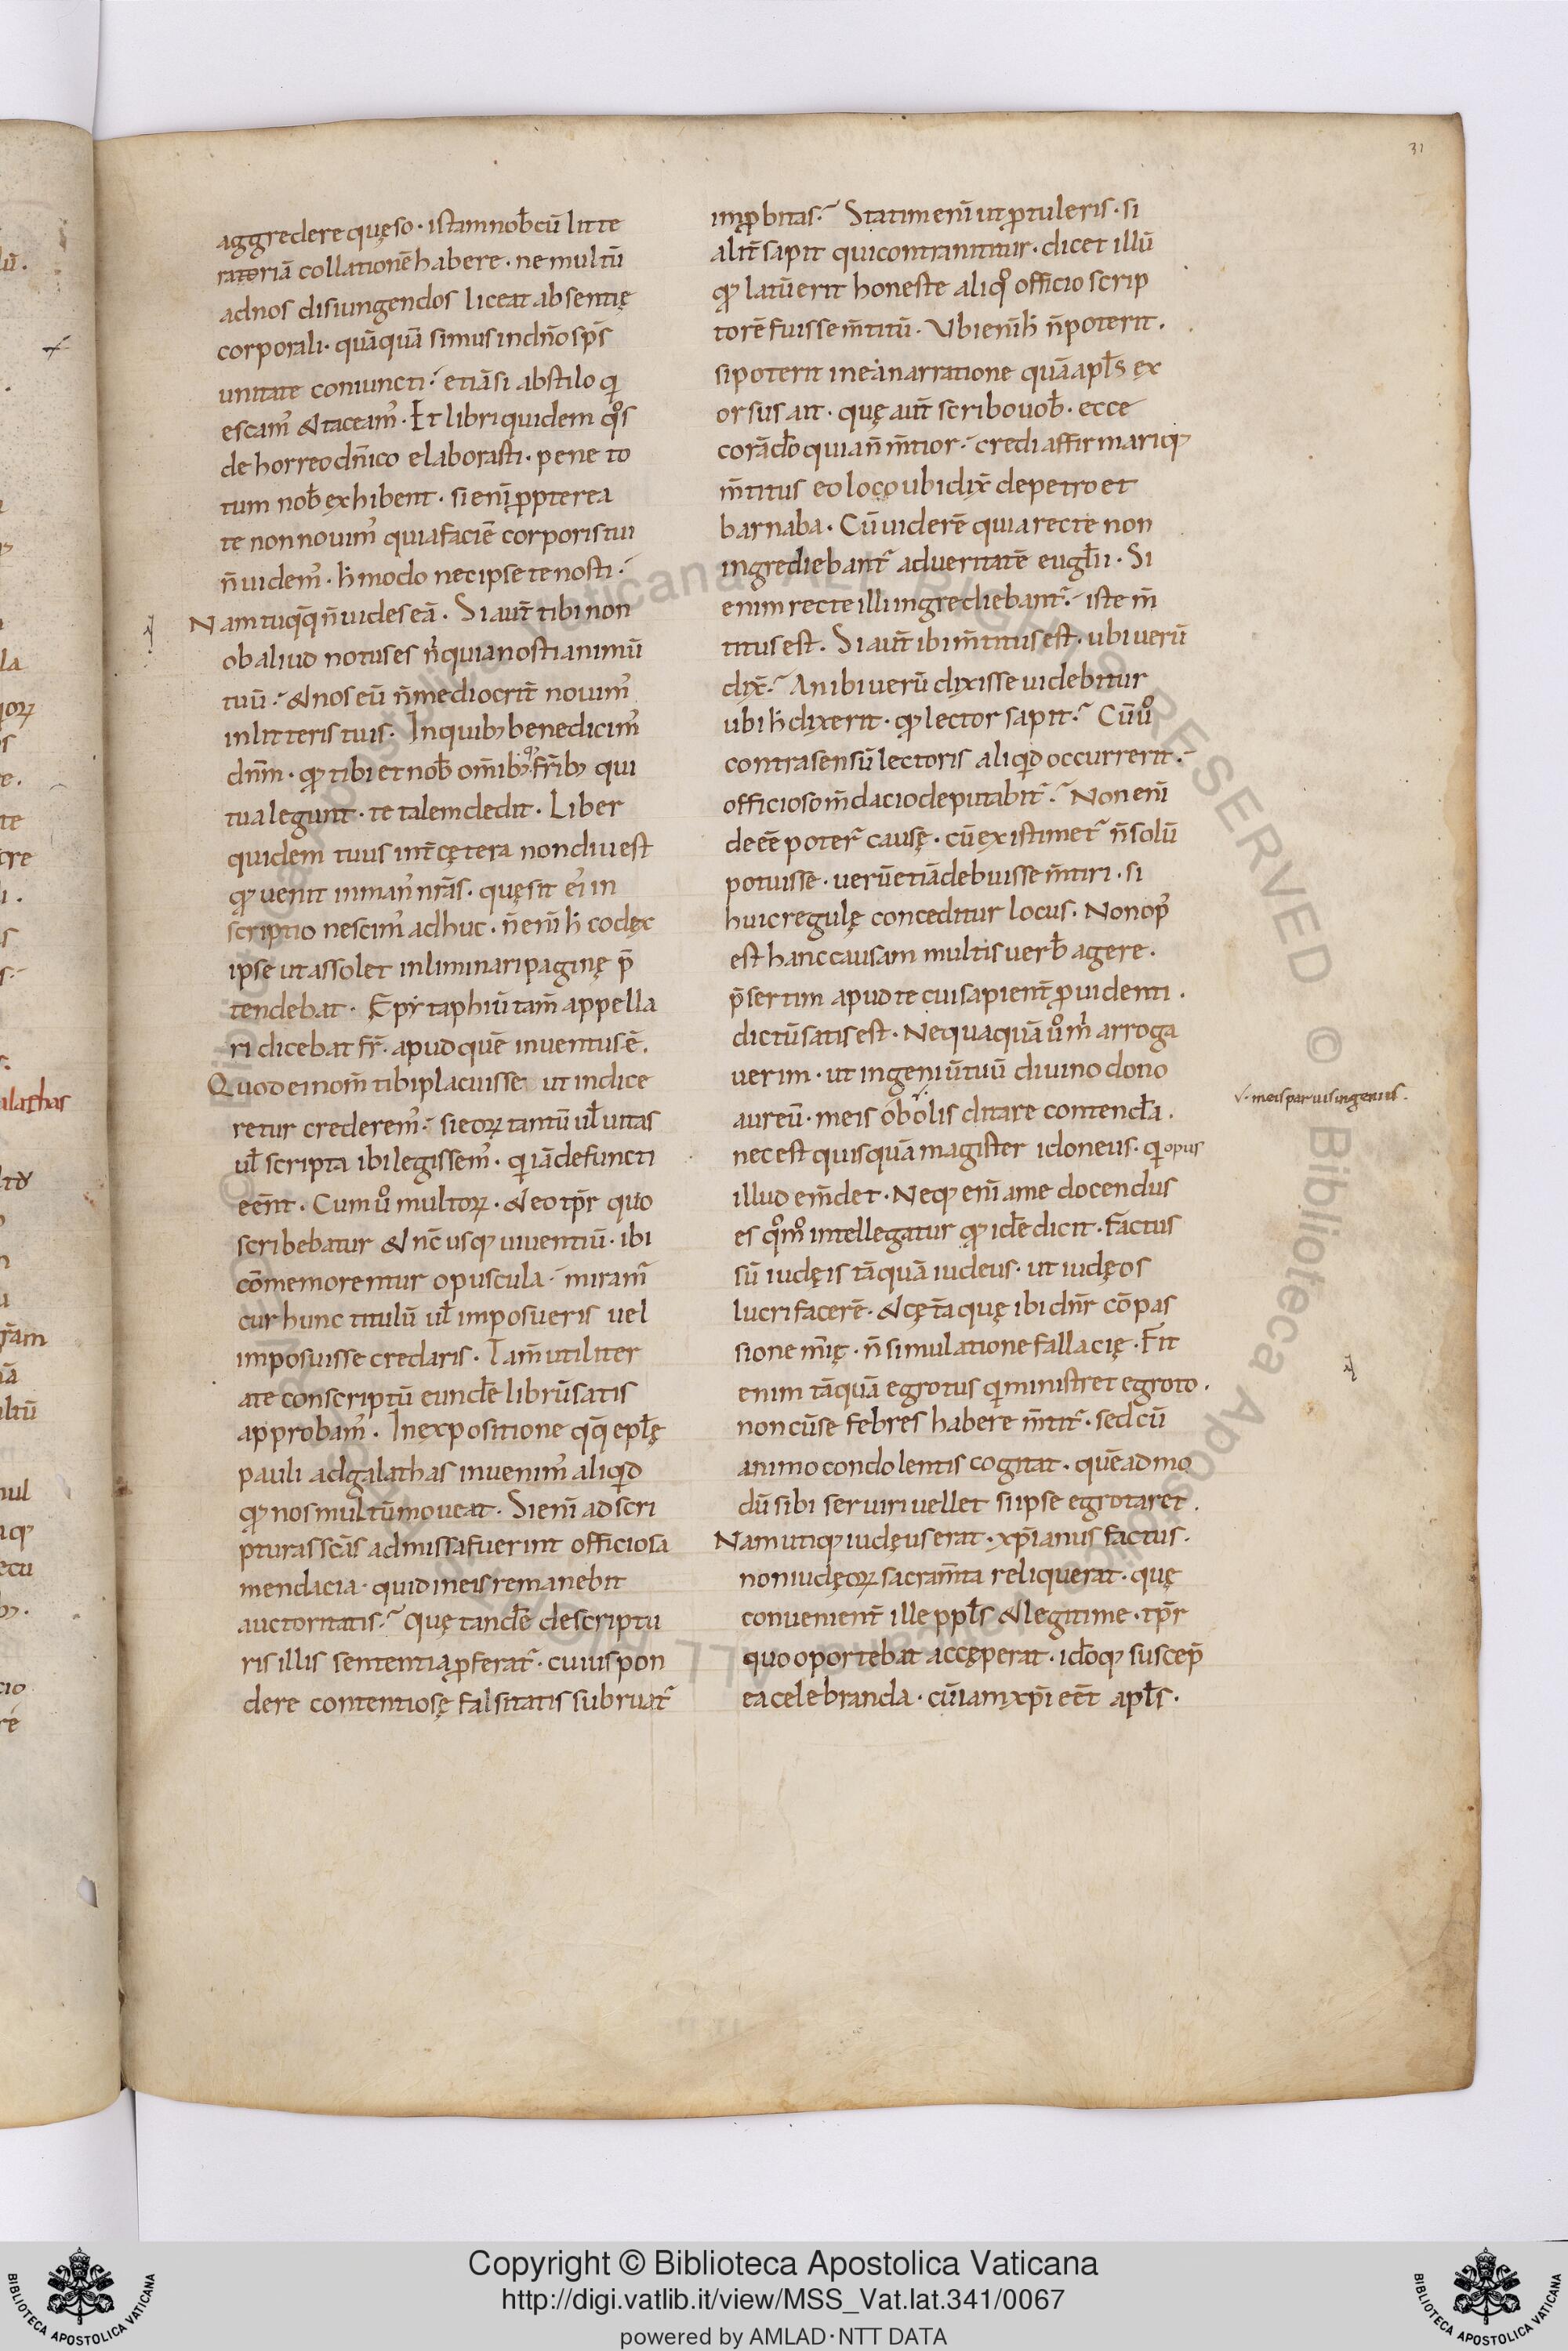 31
aggredere quęso · istam nob̄ cū litte
ratoriā collationē habere · ne multū
ad nos disiungendos liceat absentię
corporali · quāquā simus in dn̄o sp̄s
unitate coniuncti · etiā si ab stilo qi
escam᾽ & taceam᾽ · Et libri quidem qos
de horreo dn̄ico elaborasti · pene to
tum nob̄ exhibent · si eni ̄ ꝓpterea
te non nouim᾽ quia faciē corporis tui
n̄ uidem᾽ · h̄ modo nec ipse te nosti ·
Nam tu qq̄ n̄ uides eā · Si aut̄ tibi non
ob aliud notus es n᾽ quia nosti animū
tuū · & nos eū n̄ mediocrit̄ nouim᾽
in litteris tuis · In quib; benedicim᾽
dnm̄ · qđ tibi et nob̄ om̄ib; q; fr̄ib; qui
tua legunt · te talem dedit · Liber
quidem tuus int̄ cętera non diu est
qđ uenit in man᾽ nr̄as · quę sit ei᾽ in
scriptio nescim᾽ adhuc · n̄ eni ̄ h̄ codęx
ipse ut assolet in liminari paginę p̄
tendebat · Epytaphiū tam̄ appella
ri dicebat fr̄ · apud quē inuentus ē ·
Quod ei nom̄ tibi placuisse ut indice
retur crederem᾽ · si eoꝝ tantū ul̄ uitas
ul̄ scripta ibi legissem᾽ · qi iā defuncti
een̄t · Cum uo multoꝝ · & eo tp̄r quo
scribebatur & nc̄ usq; uiuentiū · ibi
cōmemorentur opuscula · miram᾽
cur hunc titulū ul̄ imposueris uel
imposuisse credaris · Tam̄ utiliter
a te conscriptū eundē librū satis
approbam᾽ · In expositione qq̄ epl̄ę
pauli ad galathas inuenim᾽ aliqid
qđ nos multū moueat · Si eni ̄ ad scri
pturas scās admissa fuerint officiosa
mendacia · quid in eis remanebit
auctoritatis · Quę tandē de scriptu
ris illis sententia ꝓferat᾽ · cuius pon
dere contentiosę falsitatis subruat᾽
imꝓbitas · Statim eni ̄ ut ꝓtuleris · si
alit̄ sapit qui contra nititur · dicet illū
qđ latūerit honeste aliqo officio scrip
torē fuisse m̄titū · Vbi eni ̄ h̄ n̄ poterit ·
si poterit in ea narratione quā apl̄s ex
orsus ait · quę aut̄ scribo uob̄ · ecce
corā do̅ quia n̄ m̄tior · credi affirmariq;
m̄titus eo loco ubi dix̄ de petro et
barnaba · Cū uiderē quia recte non
ingrediebant᾽ ad ueritatē eugl̄ii · Si
enim recte illi ingrediebant᾽ · iste m̄
titus est · Si aut̄ ibi m̄titus est · ubi uerū
dix̄ · An ibi uerū dixisse uidebitur
ubi h̄ dixerit · qđ lector sapit · Cū uo
contra sensū lectoris aliqid occurrerit ·
officioso m̄dacio deputabit᾽ · Non eni ̄
deeē poter᾽ causę · cū existimet᾽ n̄ solū
potuisse · uerū etiā debuisse m̄tiri · si
huic regulę conceditur locus · Non op᾽
est hanc causam multis uerb̄ agere ·
p̄sertim apud te cui sapient̄ ꝓuidenti ·
dictū satis est · Nequaquā uo m᾽ arroga
uerim · ut ingeniū tuū diuino dono
aureū · meis obolis ditare contendā ·
nec est quisquā magister idoneus · qi opus
illud em̄det · Neq; eni ̄ a me docendus
es qomo intellegatur qđ idē dicit · factus
sū iudęis tāquā iudeus · ut iudęos
lucri facerē · & cęt̄a quę ibi dn̄r cōpas
sione mi ̄ę · n̄ simulatione fallacię · Fit
enim tāquā egrotus qi ministret egroto ·
non cū se febres habere m̄tit᾽ · sed cū
animo condolentis cogitat · quē ad mo
dū sibi seruiri uellet si ipse egrotaret ·
Nam utiq; iudęus erat · xp̄ianus factus ·
non iudęoꝝ sacram̄ta reliquerat · quę
conuenient̄ ille ppl̄s & legitime · tp̄r
quo oportebat accęperat · ido̅q; suscep̄
ea celebranda · cū iam xp̄i eēt apl̄s ·
v · meis paruis ingeniis ·
alathas
Copyright © Biblioteca Apostolica Vaticana
http://digi.vatlib.it/view/MSS_Vat.lat.341/0067
powered by AMLAD·NTT DATA
BIBLIOTECA APOSTOLICA VATICANA
BIBLIOTECA APOSTOLICA VATICANA